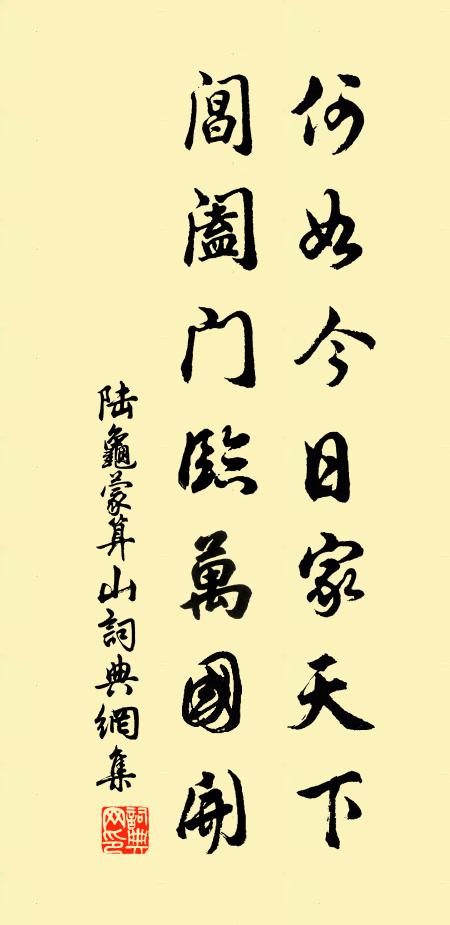 何如今日家天下
閶闔门臨萬國開
陆龜蒙算山詞典網集
詞典
网印